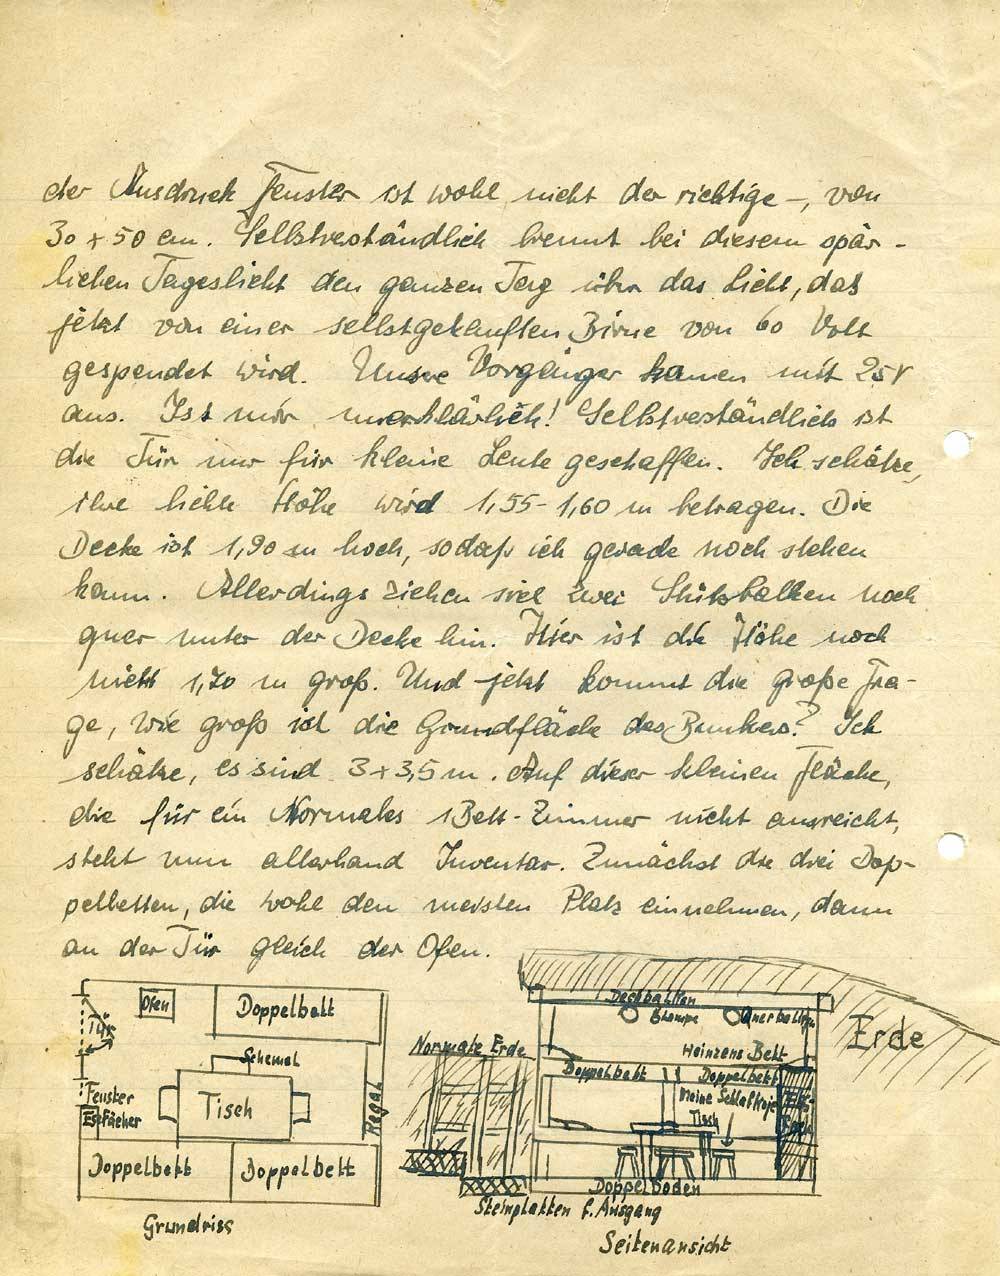 der Ausdruck Fenster ist wohl nicht der richtige –, von
30 x 50 cm. Selbstverständlich brennt bei diesem spär-
lichen Tageslicht den ganzen Tag über das Licht, das
jetzt von einer selbstgekauften Birne von 60 Volt
gespendet wird. Unsere Vorgänger kamen mit 25 V
aus. Ist mir unerklärlich! Selbstverständlich ist
die Tür nur für kleine Leute geschaffen. Ich schätze,
ihre lichte Höhe wird 1,55 - 1,60 m betragen. Die
Decke ist 1,90 m hoch, sodaß ich gerade noch stehen
kann. Allerdings ziehen sich zwei Stützbalken noch
quer unter der Decke hin. Hier ist die Höhe noch
nicht 1,70 m groß. Und jetzt kommt die große Fra-
ge, wie groß ist die Grundfläche des Bunkers? Ich
schätze, es sind 3 x 3,5 m. Auf dieser kleinen Fläche,
die für ein Normales 1 Bett-Zimmer nicht ausreicht,
steht nun allerhand Inventar. Zunächst die drei Dop-
pelbetten, die wohl den meisten Platz einnehmen, dann
an der Tür gleich der Ofen.
Ofen
Doppelbett
Tür
Schemel
Fenster
Eßfächer
Tisch
Regal
Doppelbett
Doppelbett
Grundriss
Deckbalken
Lampe
Querbalken
Erde
Normale Erde
Heinzens Bett
Doppelbett
Doppelbett
Meine Schlafkoje
Tisch
Doppelboden
Steinplatten f. Ausgang
Seitenansicht